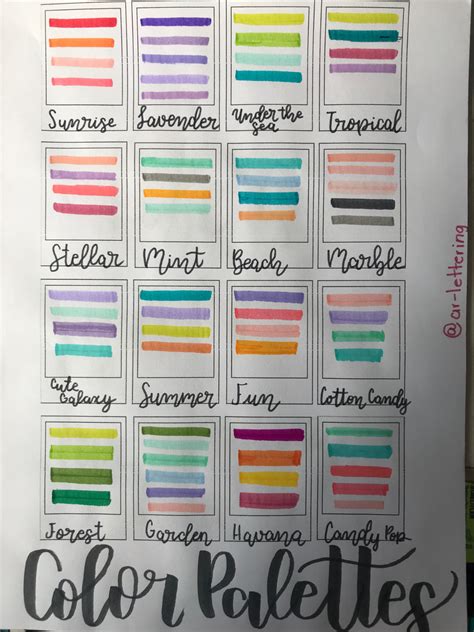 Sunrise Lavender Under the sea Tropical
Stellar Mint Beach Marble
Cute Galaxy Summer Fun Cotton Candy
Forest Garden Havana Candy Pop
Color Palettes
@ar-lettering